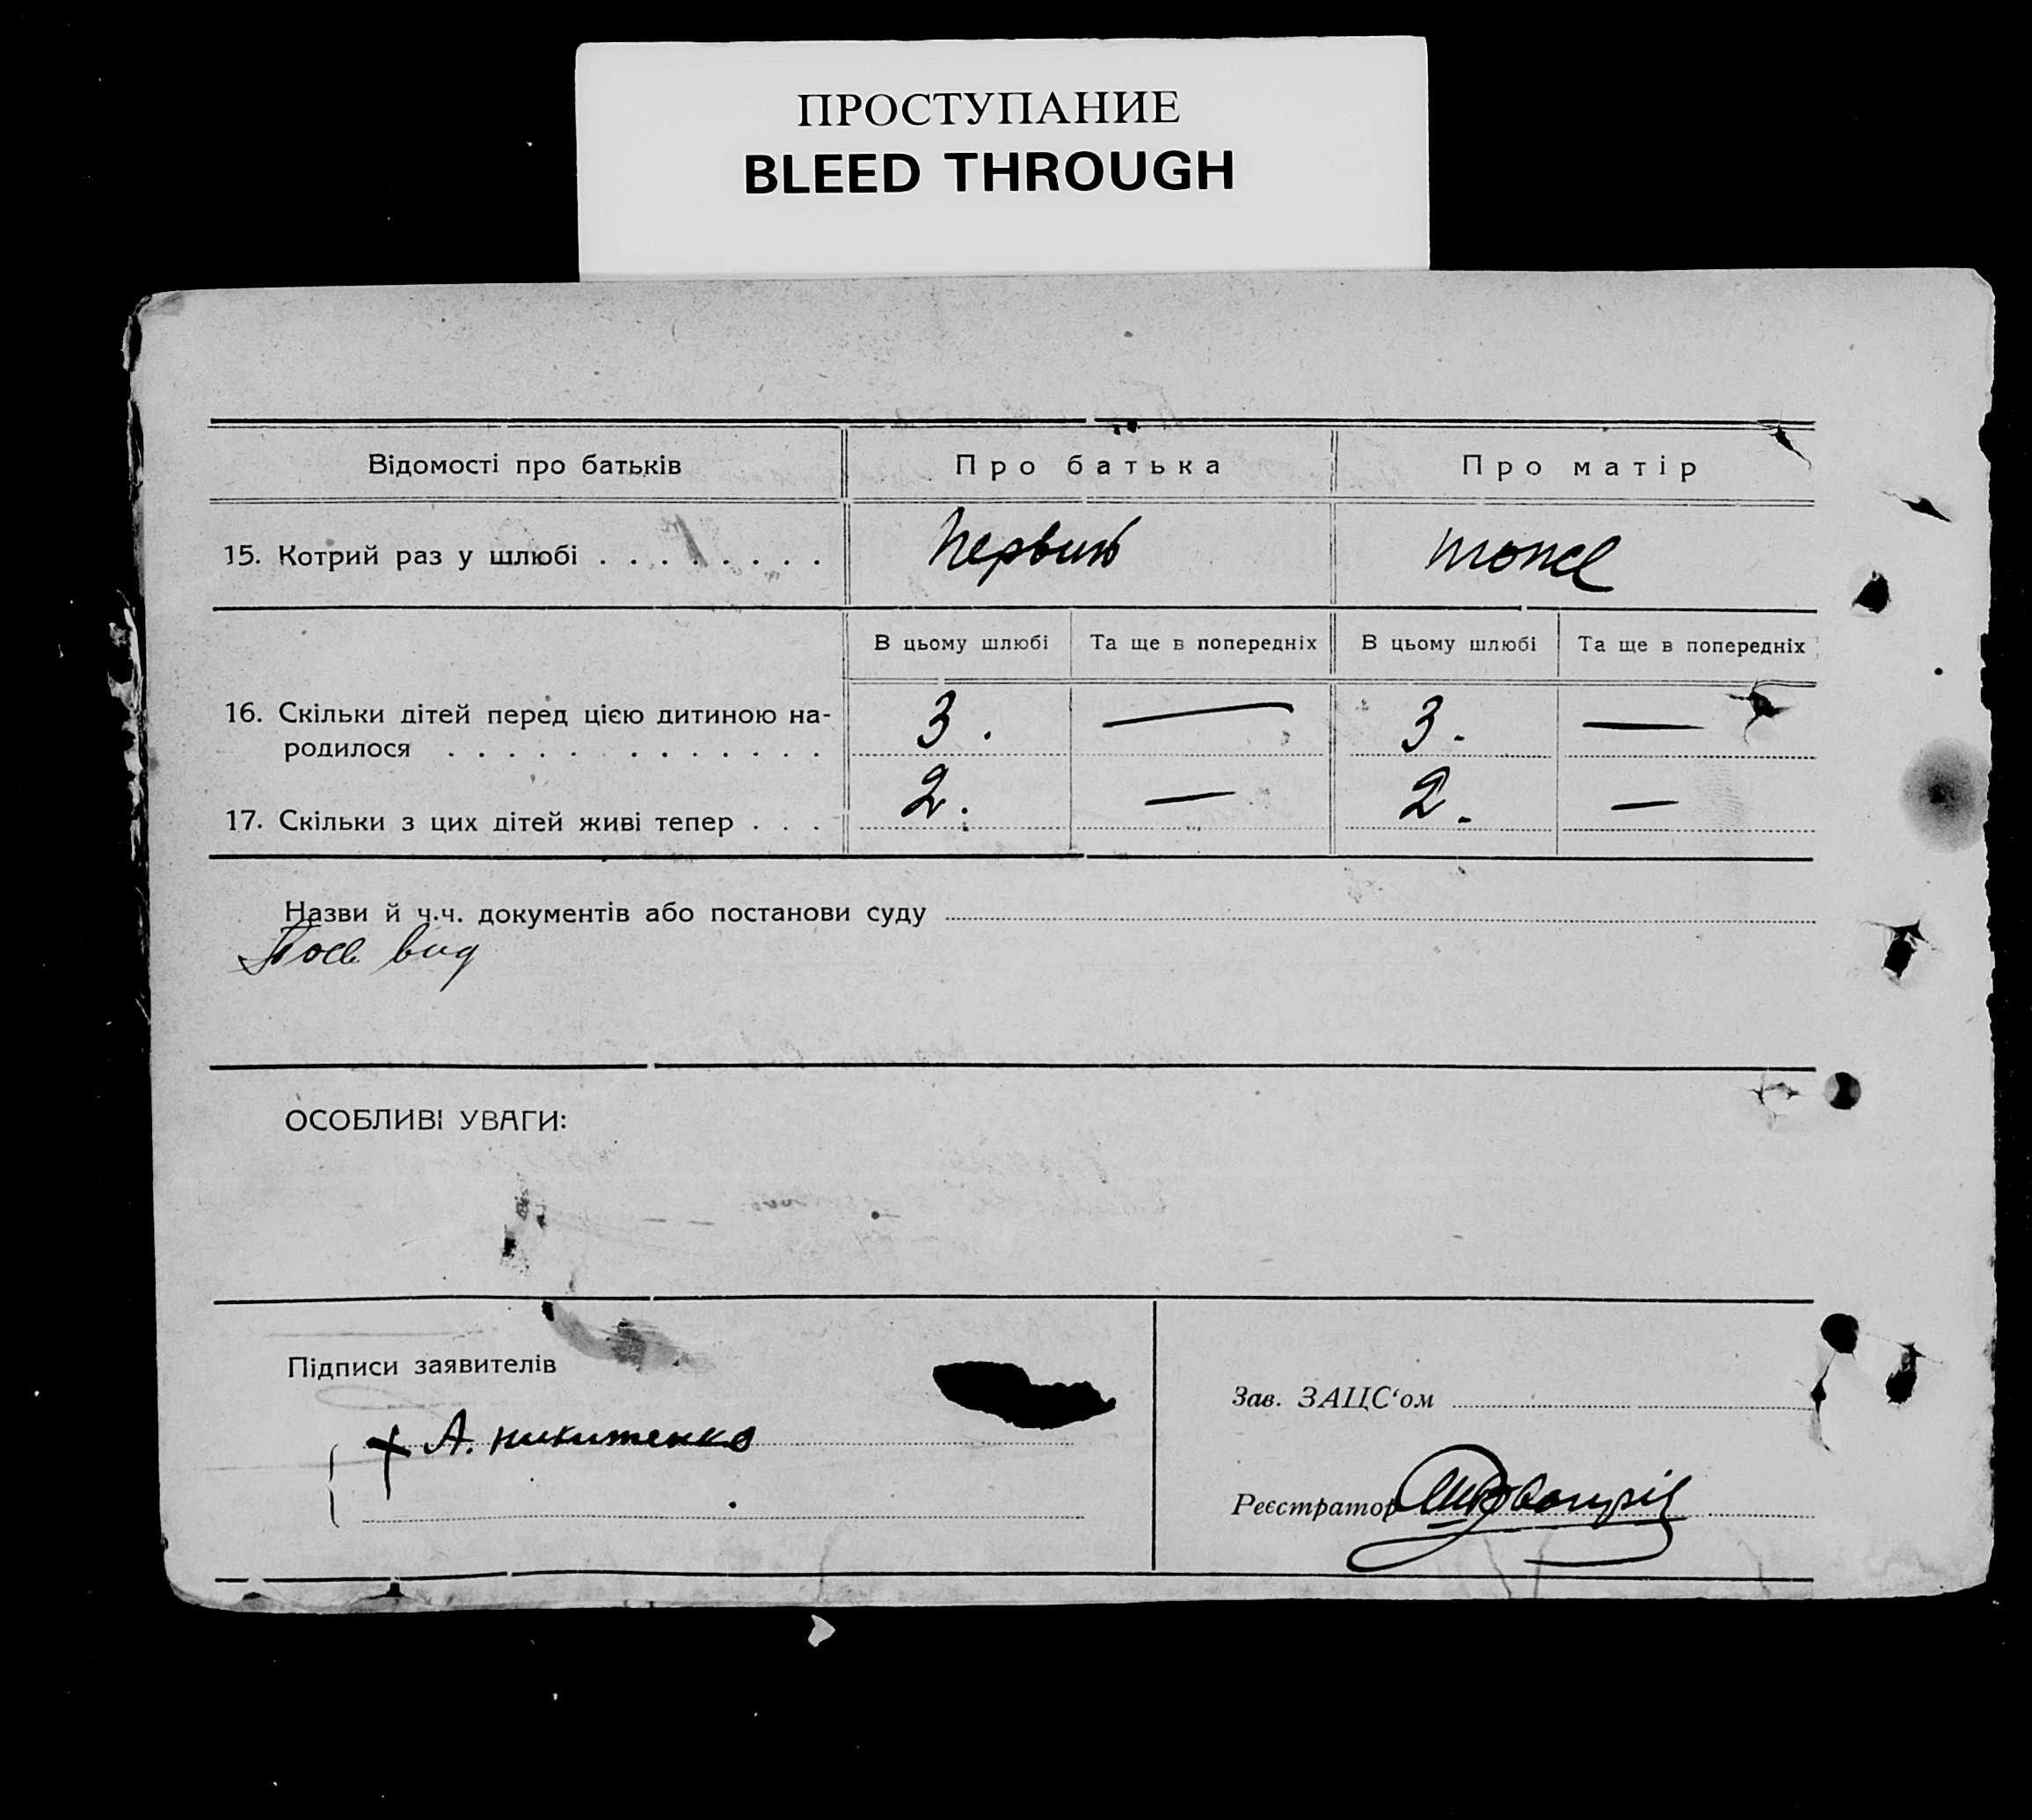 ПРОСТУПАНИЕ
BLEED THROUGH
Відомості про батьків Про батька Про матір
15. Котрий раз у шлюбі . . . . . . . . Первий тоже
В цьому шлюбі Та ще в попередніх В цьому шлюбі Та ще в попередніх
16. Скільки дітей перед цією дитиною на-
родилося . . . . . . . . . . . . 3. — 3. —
17. Скільки з цих дітей живі тепер . . . 2. — 2. —
Назви й ч.ч. документів або постанови суду
вид
ОСОБЛИВІ УВАГИ:
Підписи заявителів
Зав. ЗАЦС‘ом
+ А. Никитенко
Реєстратор